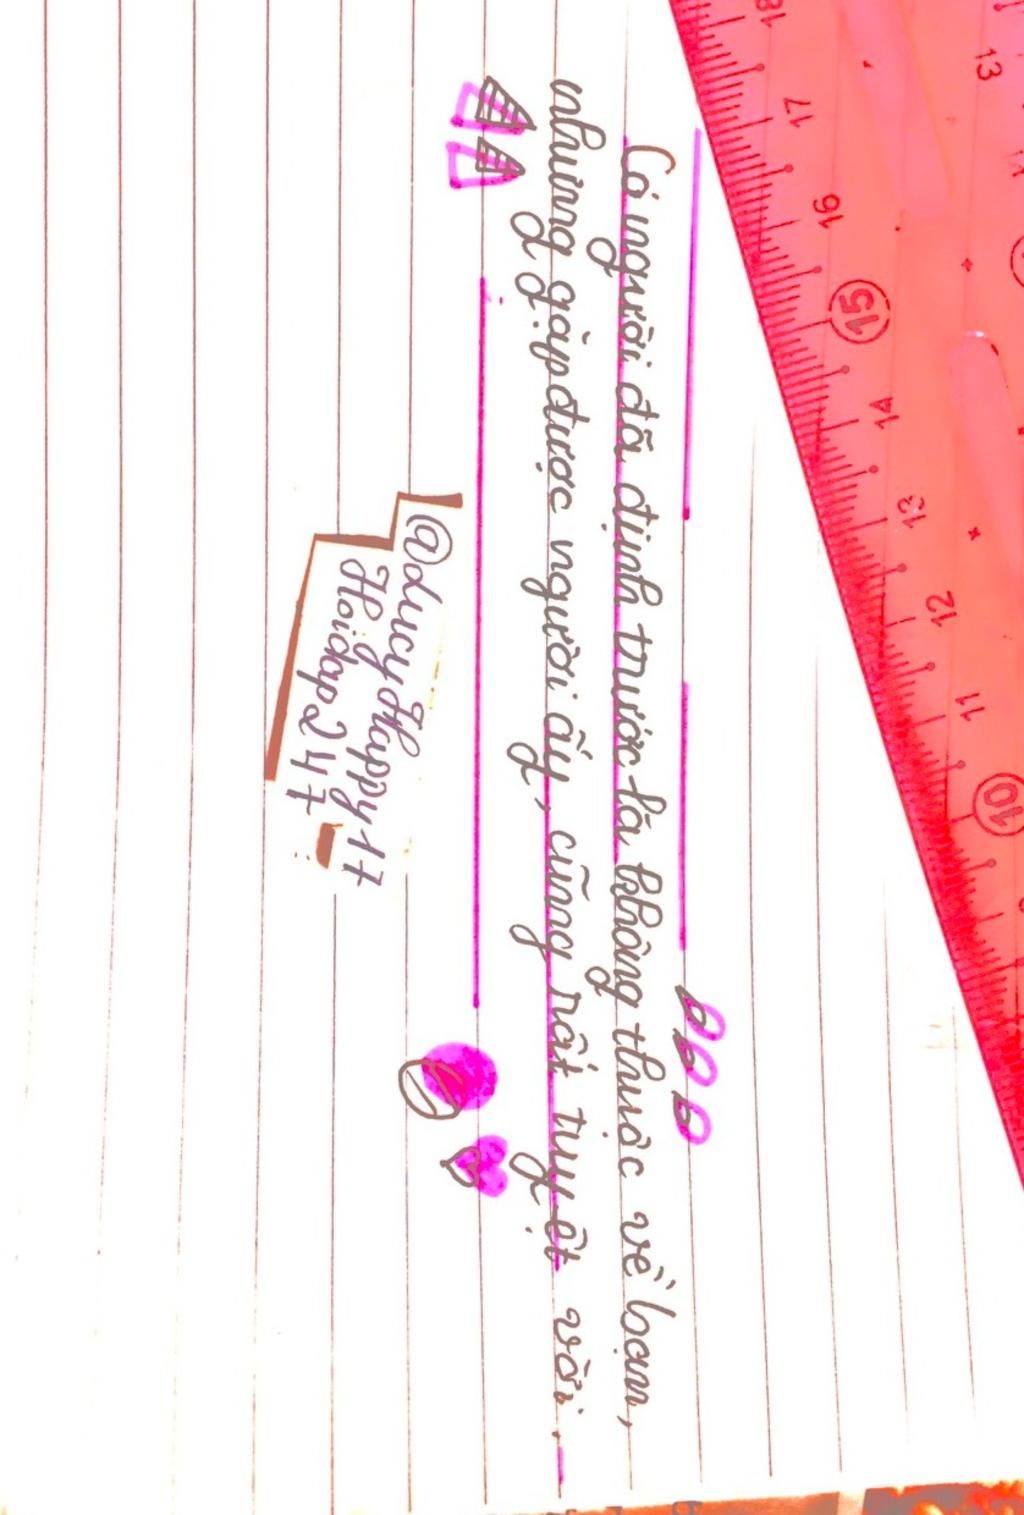 Có người đã định trước là không thuộc về bạn,
những gặp được người ấy, cũng rất tuyệt vời.
@LucyHappy17
Hoidap247
18 17 16 15 14 13 12 11 10
13